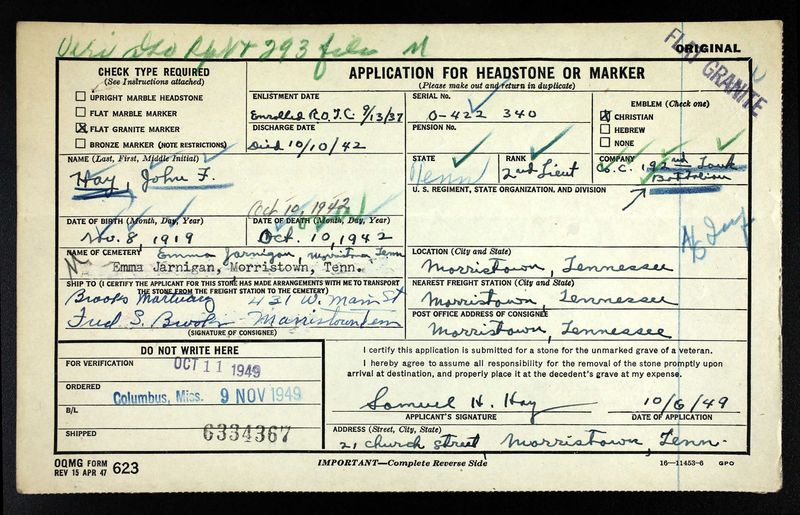 Veri
293 file M
ORIGINAL
FLAT GRANITE
CHECK TYPE REQUIRED
(See Instructions attached)
UPRIGHT MARBLE HEADSTONE
FLAT MARBLE MARKER
X FLAT GRANITE MARKER
BRONZE MARKER (NOTE RESTRICTIONS)
APPLICATION FOR HEADSTONE OR MARKER
(Please make out and return in duplicate)
ENLISTMENT DATE
Enrolled R.O.T.C. 9/13/37
DISCHARGE DATE
Died 10/10/42
SERIAL No.
O-422 340
PENSION No.
EMBLEM (Check one)
X CHRISTIAN
HEBREW
NONE
NAME (Last, First, Middle Initial)
Hay, John F.
STATE
Tenn
RANK
2nd Lieut
COMPANY
Co. C. 192nd Tank
Battalion
U. S. REGIMENT, STATE ORGANIZATION, AND DIVISION
Oct 10, 1942
DATE OF BIRTH (Month, Day, Year)
Nov. 8, 1919
DATE OF DEATH (Month, Day, Year)
Oct. 10, 1942
NAME OF CEMETERY
Emma Jarnigan, Morristown, Tenn
Emma Jarnigan, Morristown, Tenn.
LOCATION (City and State)
Morristown, Tennessee
SHIP TO (I CERTIFY THE APPLICANT FOR THIS STONE HAS MADE ARRANGEMENTS WITH ME TO TRANSPORT
THE STONE FROM THE FREIGHT STATION TO THE CEMETERY)
Brooks Mortuary 431 W. Main St
Fred S. Brooks Morristown Tenn
(SIGNATURE OF CONSIGNEE)
NEAREST FREIGHT STATION (City and State)
Morristown, Tennessee
POST OFFICE ADDRESS OF CONSIGNEE
Morristown, Tennessee
DO NOT WRITE HERE
FOR VERIFICATION
OCT 11 1949
ORDERED
Columbus, Miss. 9 NOV 1949
B/L
SHIPPED
6334367
I certify this application is submitted for a stone for the unmarked grave of a veteran.
I hereby agree to assume all responsibility for the removal of the stone promptly upon
arrival at destination, and properly place it at the decedent's grave at my expense.
Samuel H. Hay
10/6/49
APPLICANT'S SIGNATURE
DATE OF APPLICATION
ADDRESS (Street, City, State)
21 Church Street, Morristown, Tenn.
OQMG FORM
REV 15 APR 47 623
IMPORTANT—Complete Reverse Side
16—11453-6 GPO